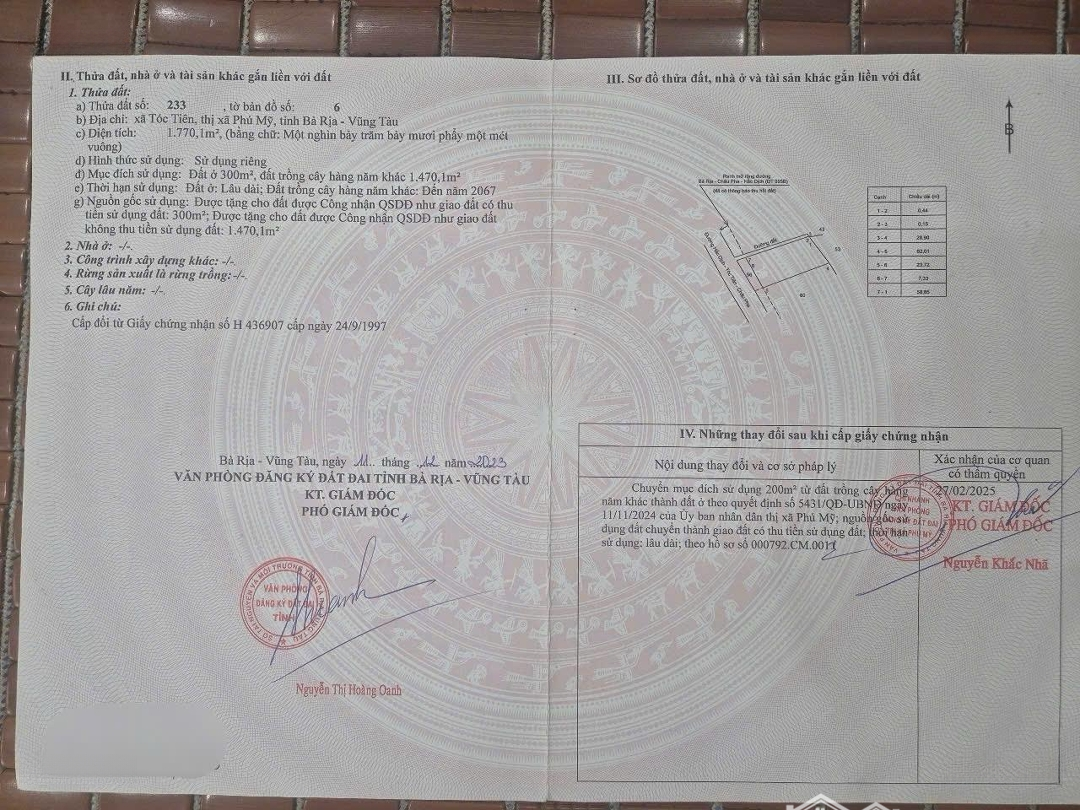 II. Thửa đất, nhà ở và tài sản khác gắn liền với đất
1. Thửa đất:
a) Thửa đất số: 233 , tờ bản đồ số: 6
b) Địa chỉ: xã Tóc Tiên, thị xã Phú Mỹ, tỉnh Bà Rịa - Vũng Tàu
c) Diện tích: 1.770,1m², (bằng chữ: Một nghìn bảy trăm bảy mươi phẩy một mét
vuông)
d) Hình thức sử dụng: Sử dụng riêng
đ) Mục đích sử dụng: Đất ở 300m², đất trồng cây hàng năm khác 1.470,1m²
e) Thời hạn sử dụng: Đất ở: Lâu dài; Đất trồng cây hàng năm khác: Đến năm 2067
g) Nguồn gốc sử dụng: Được tặng cho đất được Công nhận QSDĐ như giao đất có thu
tiền sử dụng đất: 300m²; Được tặng cho đất được Công nhận QSDĐ như giao đất
không thu tiền sử dụng đất: 1.470,1m²
2. Nhà ở: -/-.
3. Công trình xây dựng khác: -/-.
4. Rừng sản xuất là rừng trồng:-/-.
5. Cây lâu năm: -/-.
6. Ghi chú:
Cấp đổi từ Giấy chứng nhận số H 436907 cấp ngày 24/9/1997
Bà Rịa - Vũng Tàu, ngày 11.. tháng .12 năm 2023
VĂN PHÒNG ĐĂNG KÝ ĐẤT ĐAI TỈNH BÀ RỊA - VŨNG TÀU
KT. GIÁM ĐỐC
PHÓ GIÁM ĐỐC
SỞ TÀI NGUYÊN VÀ MÔI TRƯỜNG TỈNH BÀ RỊA VŨNG TÀU
VĂN PHÒNG
ĐĂNG KÝ ĐẤT ĐAI
TỈNH
Nguyễn Thị Hoàng Oanh
III. Sơ đồ thửa đất, nhà ở và tài sản khác gắn liền với đất
B
Ranh mở rộng đường
Bà Rịa - Châu Pha - Hắc Dịch
(đã có thông báo thu hồi đất)
Đường đất
43
53
60
Cạnh Chiều dài (m)
1 - 2 0,44
2 - 3
3 - 4
4 - 5
5 - 6
6 - 7 7,33
7 - 1
IV. Những thay đổi sau khi cấp giấy chứng nhận
Nội dung thay đổi và cơ sở pháp lý
Xác nhận của cơ quan
có thẩm quyền
Chuyển mục đích sử dụng 200m² từ đất trồng cây hàng
năm khác thành đất ở theo quyết định số 5431/QĐ-UBND ngày
11/11/2024 của Ủy ban nhân dân thị xã Phú Mỹ; nguồn gốc sử
dụng đất chuyển thành giao đất có thu tiền sử dụng đất; thời hạn
sử dụng: lâu dài; theo hồ sơ số 000792.CM.001
27/02/2025
KT. GIÁM ĐỐC
PHÓ GIÁM ĐỐC
CHI NHÁNH
VĂN PHÒNG
ĐĂNG KÝ ĐẤT ĐAI
THỊ XÃ PHÚ MỸ
Nguyễn Khắc Nhã